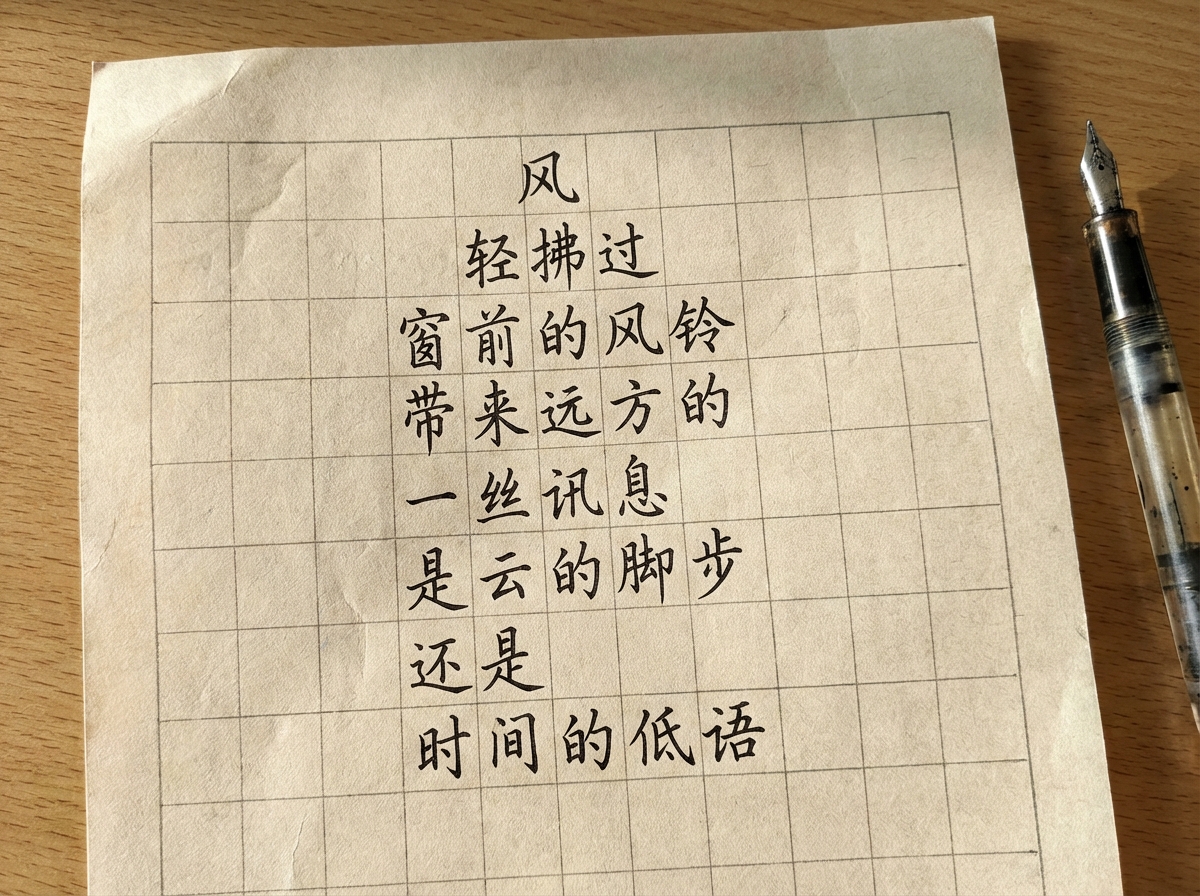 风
轻拂过
窗前的风铃
带来远方的
一丝讯息
是云的脚步
还是
时间的低语